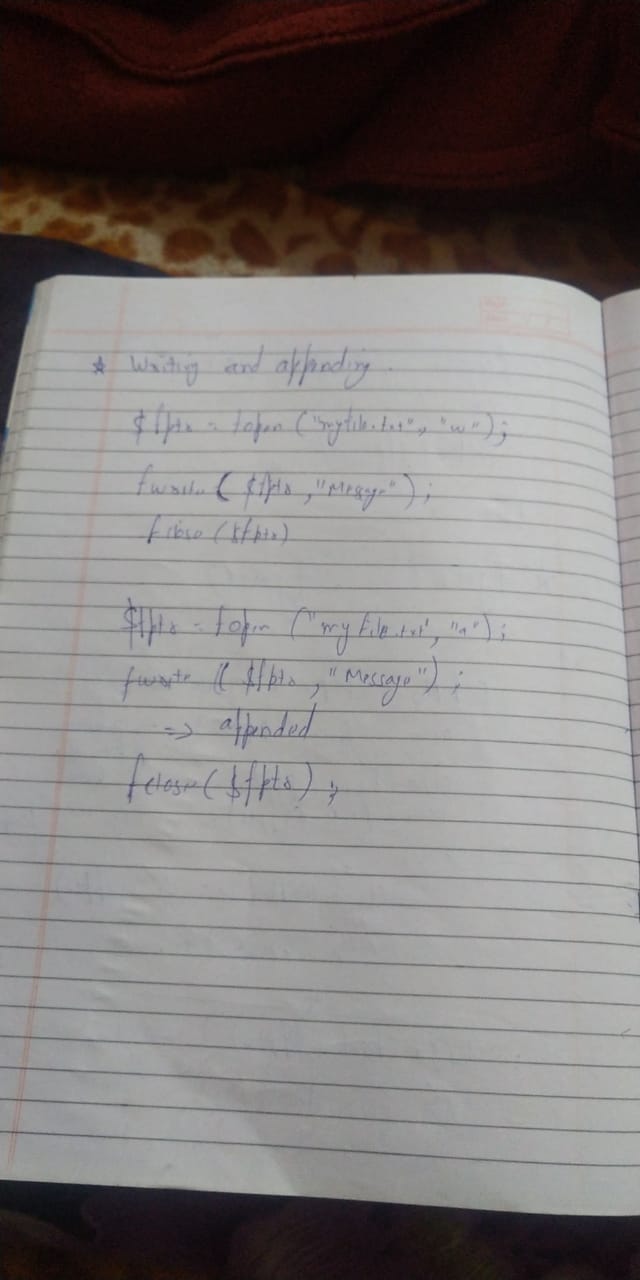 * Writing and appending.
$fptr = fopen ("myfile.txt", "w");
fwrite ( $fptr , "Message") ;
fclose ($fptr)
$fptr = fopen ("myfile.txt", "a");
fwrite (( $fptr , "Message") ;
=> appended
fclose ( $fptr ) ;